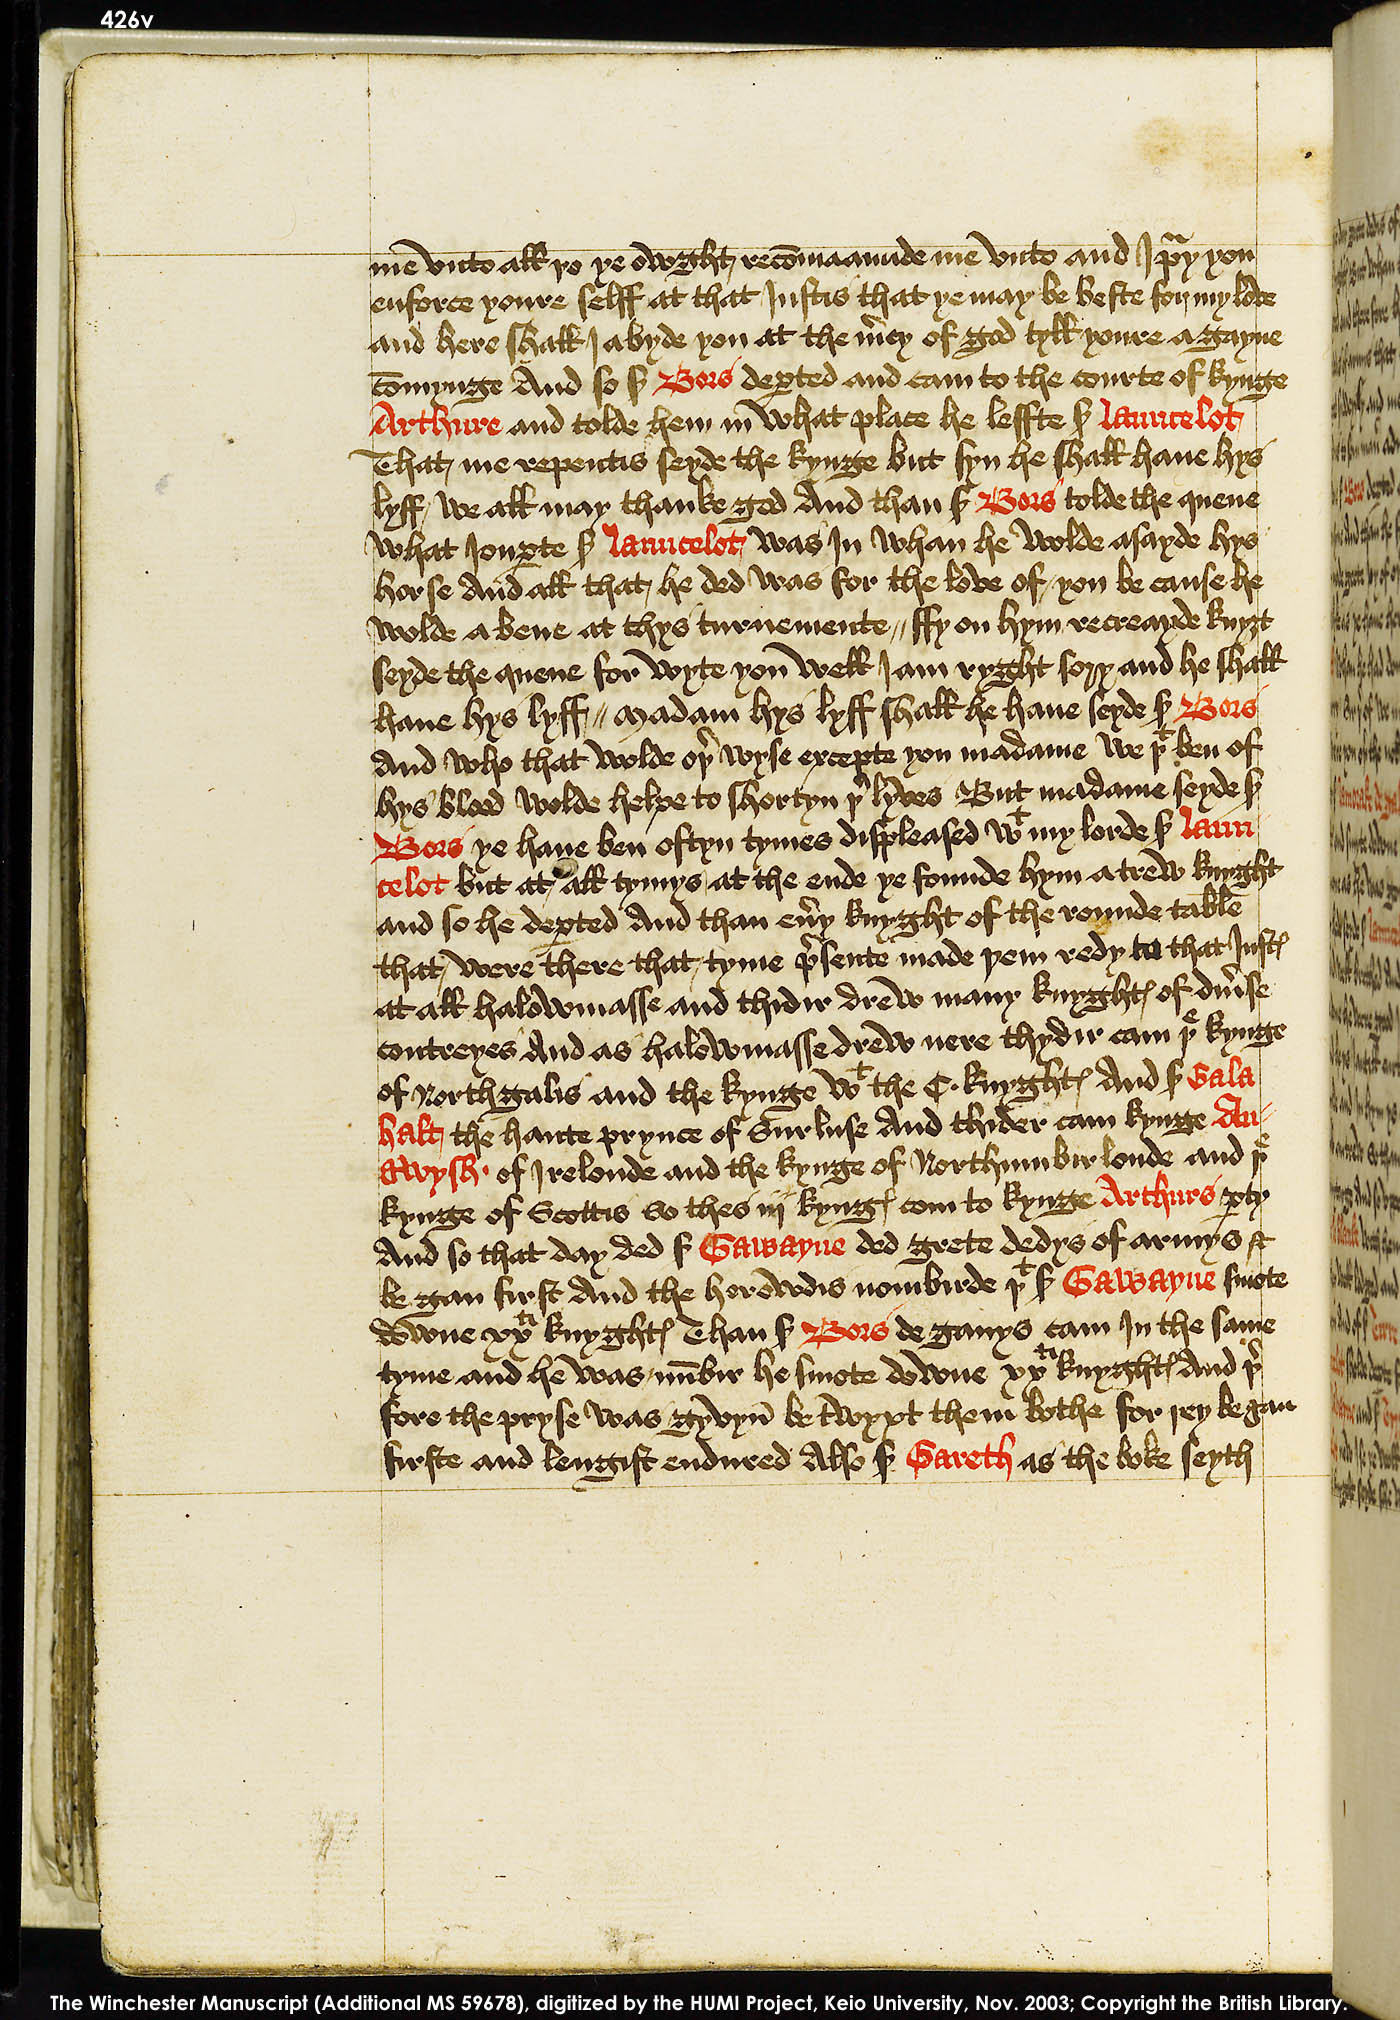 426v
me vnto all þo ye owght recōmaunde me vnto and I pͣy you
enforce youre selff at that Iustis that ye may be beste for my love
and here shall I abyde you at the m̉cy of god tyll youre a gayne
cōmynge And so sʳ Bors depted and cam to the courte of kynge
Arthure and tolde hem in what place he leffte sʳ launcelot
That me repentis seyde the kynge but syn he shall haue hys
lyff we all may thanke god And than sʳ Bors tolde the quene
what Ioupte sʳ launcelot was In whan he wolde asayde hys
horse And all that he ded was for the love of you be cause he
wolde a bene at thys turnemente // ffy on hym recreayde knyȝt
seyde the quene for wyte you well I am ryght sory and he shall
haue hys lyff // Madam hys lyff shall he haue seyde sʳ Bors
And who that wolde oþ̉ wyse excepte you madame we þᵗ ben of
hys blood wolde helpe to shortyn þ̉ lyves But madame seyde sʳ
Bors ye haue ben oftyn tymes displeased wᵗ my lorde sʳ laun
celot but at all tymys at the ende ye founde hym a trew knyght
and so he depted And than eủy knyght of the rounde table
that were there that tyme p̉sente made þem redy to that Iustꝭ
at all halowmasse and thidir drew many knyghtꝭ of diủse
contreyes And as halowmasse drew nere thydir cam þᵉ kynge
of Northgalis and the kynge wᵗ the C. knyghtꝭ And sʳ Gala
halt the haute prynce of Surluse And thider cam kynge An
gwysh· of Irelonde and the kynge of Northumbirlonde and þᵉ
kynge of Scottis So thes iij kyngꝭ com to kynge Arthurs pty
And so that day ded sʳ Gawayne ded grete dedys of armys &
be gan first And the herowdis nombirde þᵗ sʳ Gawayne smote
downe xxᵗⁱ knyghtꝭ Than sʳ Bors de ganys cam In the same
tyme and he was nūbir he smote downe xxᵗⁱ knyghtꝭ And þ̉
fore the pryse was gyvyn̄ be twyxt them bothe for þey be gan
firste and lengist endured Also sʳ Gareth as the boke seyth
The Winchester Manuscript (Additional MS 59678), digitized by the HUMI Project, Keio University, Nov. 2003; Copyright the British Library.